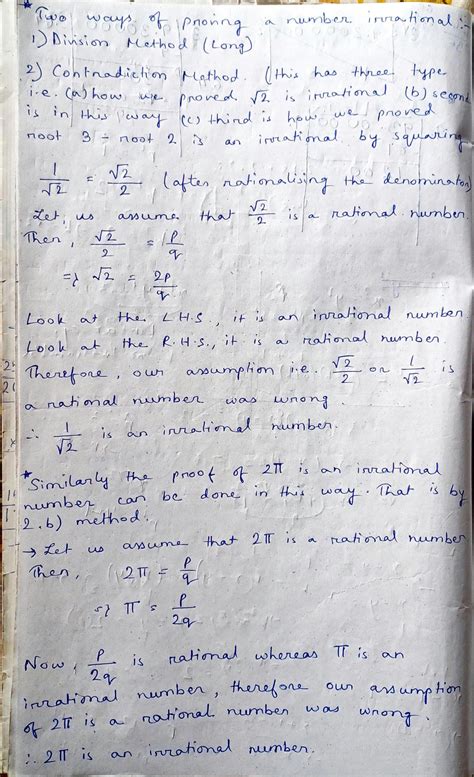 * Two ways of proving a number irrational :-
1) Division Method (Long)
2) Contradiction Method. (this has three type
i.e. (a) how we proved √2 is irrational (b) second
is in this way (c) third is how we proved
root 3 - root 2 is an irrational by squaring
1/√2 = √2/2 (after rationalising the denominator)
Let, us assume that √2/2 is a rational number.
Then, √2/2 = p/q
=> √2 = 2p/q
Look at the L.H.S., it is an irrational number.
Look at the R.H.S., it is a rational number.
Therefore, our assumption i.e. √2/2 or 1/√2 is
a rational number was wrong.
∴ 1/√2 is an irrational number.
* Similarly the proof of 2π is an irrational
number can be done in this way. That is by
2.b) method.
→ Let us assume that 2π is a rational number
Then, 2π = p/q
=> π = p/2q
Now, p/2q is rational whereas π is an
irrational number, therefore our assumption
of 2π is a rational number was wrong.
∴ 2π is an irrational number.